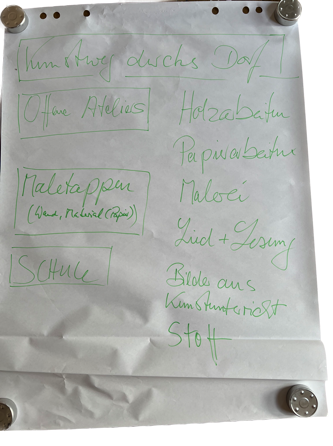 Kunstweg durchs Dorf!
Offene Ateliers
Holzarbeiten
Papierarbeiten
Maletappen
(Wand, Material (Papier))
Malerei
Lied + Lesung
SCHULE
Bilder aus
Kunstunterricht
Stoff